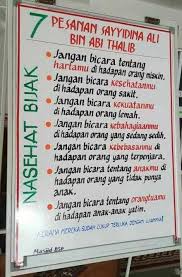 7 PESANAN SAYYIDINA ALI
BIN ABI THALIB
NASEHAT BIJAK
• Jangan bicara tentang
hartamu di hadapan orang miskin.
• Jangan bicara kesehatanmu
di hadapan orang sakit.
• Jangan bicara kekuatanmu
di hadapan orang lemah.
• Jangan bicara kebahagiaanmu
di hadapan orang yang sedih.
• Jangan bicara kebebasanmu di
hadapan orang yang terpenjara.
• Jangan bicara tentang anakmu di
hadapan orang yang tidak punya
anak.
• Jangan bicara tentang orangtuamu
di hadapan anak-anak yatim,
KARENA MEREKA SUDAH CUKUP TERLUKA DENGAN
Masjid BSP